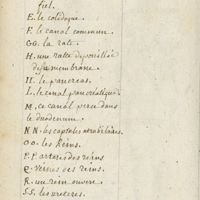 fiel.
E. le colidoque.
F. le canal commun.
GG. la rate.
H. une ratte depouillée
de sa membrane.
II. le pancreas.
L. le canal pancréatique.
M. ce canal percé dans
le duodenum.
NN. les capsules atrabilaires.
Oo. les Reins.
P.P. arteres des reins
Q. Veines des reins.
R. un rein ouvert.
SS. les ureteres.